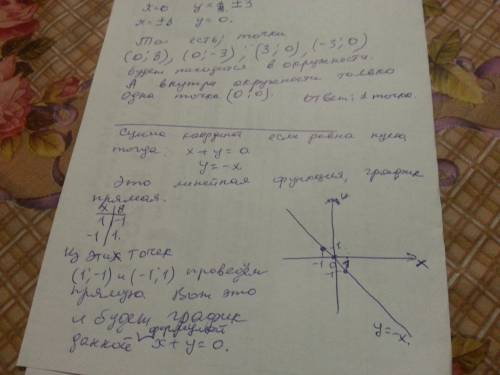 x=0 y=±3
x=±3 y=0.
То есть, точки
(0; 3), (0; -3); (3; 0), (-3; 0)
будет находится в окружности.
А внутри окружности только
одна точка (0; 0). Ответ: 1 точка.
Сумма координат если равна нулю,
тогда x+y=0
y=-x
Это линейная функция, график
прямая.
x | y
1 | -1
-1 | 1.
Из этих точек
(1; -1) и (-1; 1) проведём
прямую. Вот это
и будет график
формулой
данной x+y=0.
y
1
-1 0 1 x
-1
y=-x.